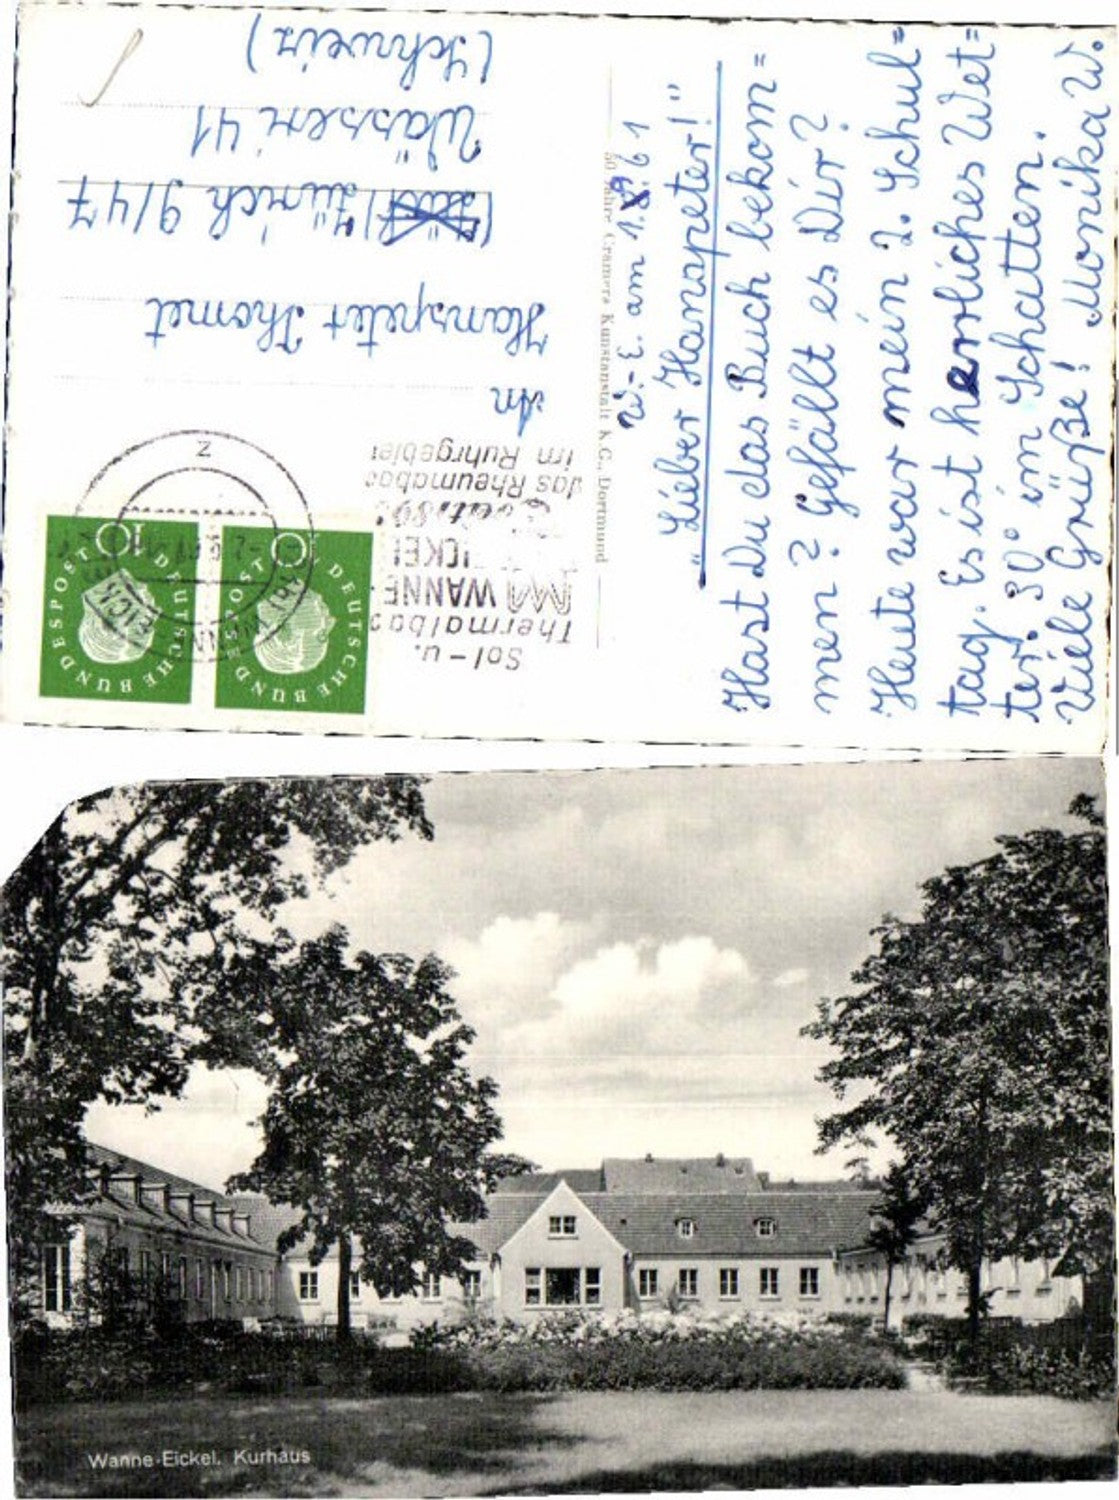 W.-E. am 1.9.61
"Lieber Hanspeter!"
Hast Du das Buch bekom=
men? Gefällt es Dir?
Heute war mein 2. Schul=
tag. Es ist herrliches Wet=
ter. 30° im Schatten.
Viele Grüße! Monika W.
50 Jahre Cramers Kunstanstalt K.G., Dortmund
Sol- u.
Thermalbad
WANNE
EICKEL
das Rheumabad
im Ruhrgebiet
z
DEUTSCHE BUNDESPOST
10
DEUTSCHE BUNDESPOST
10
An
Hanspeter Thomet
Zürich 9/47
Wasseri 41
(Schweiz)
Wanne-Eickel. Kurhaus